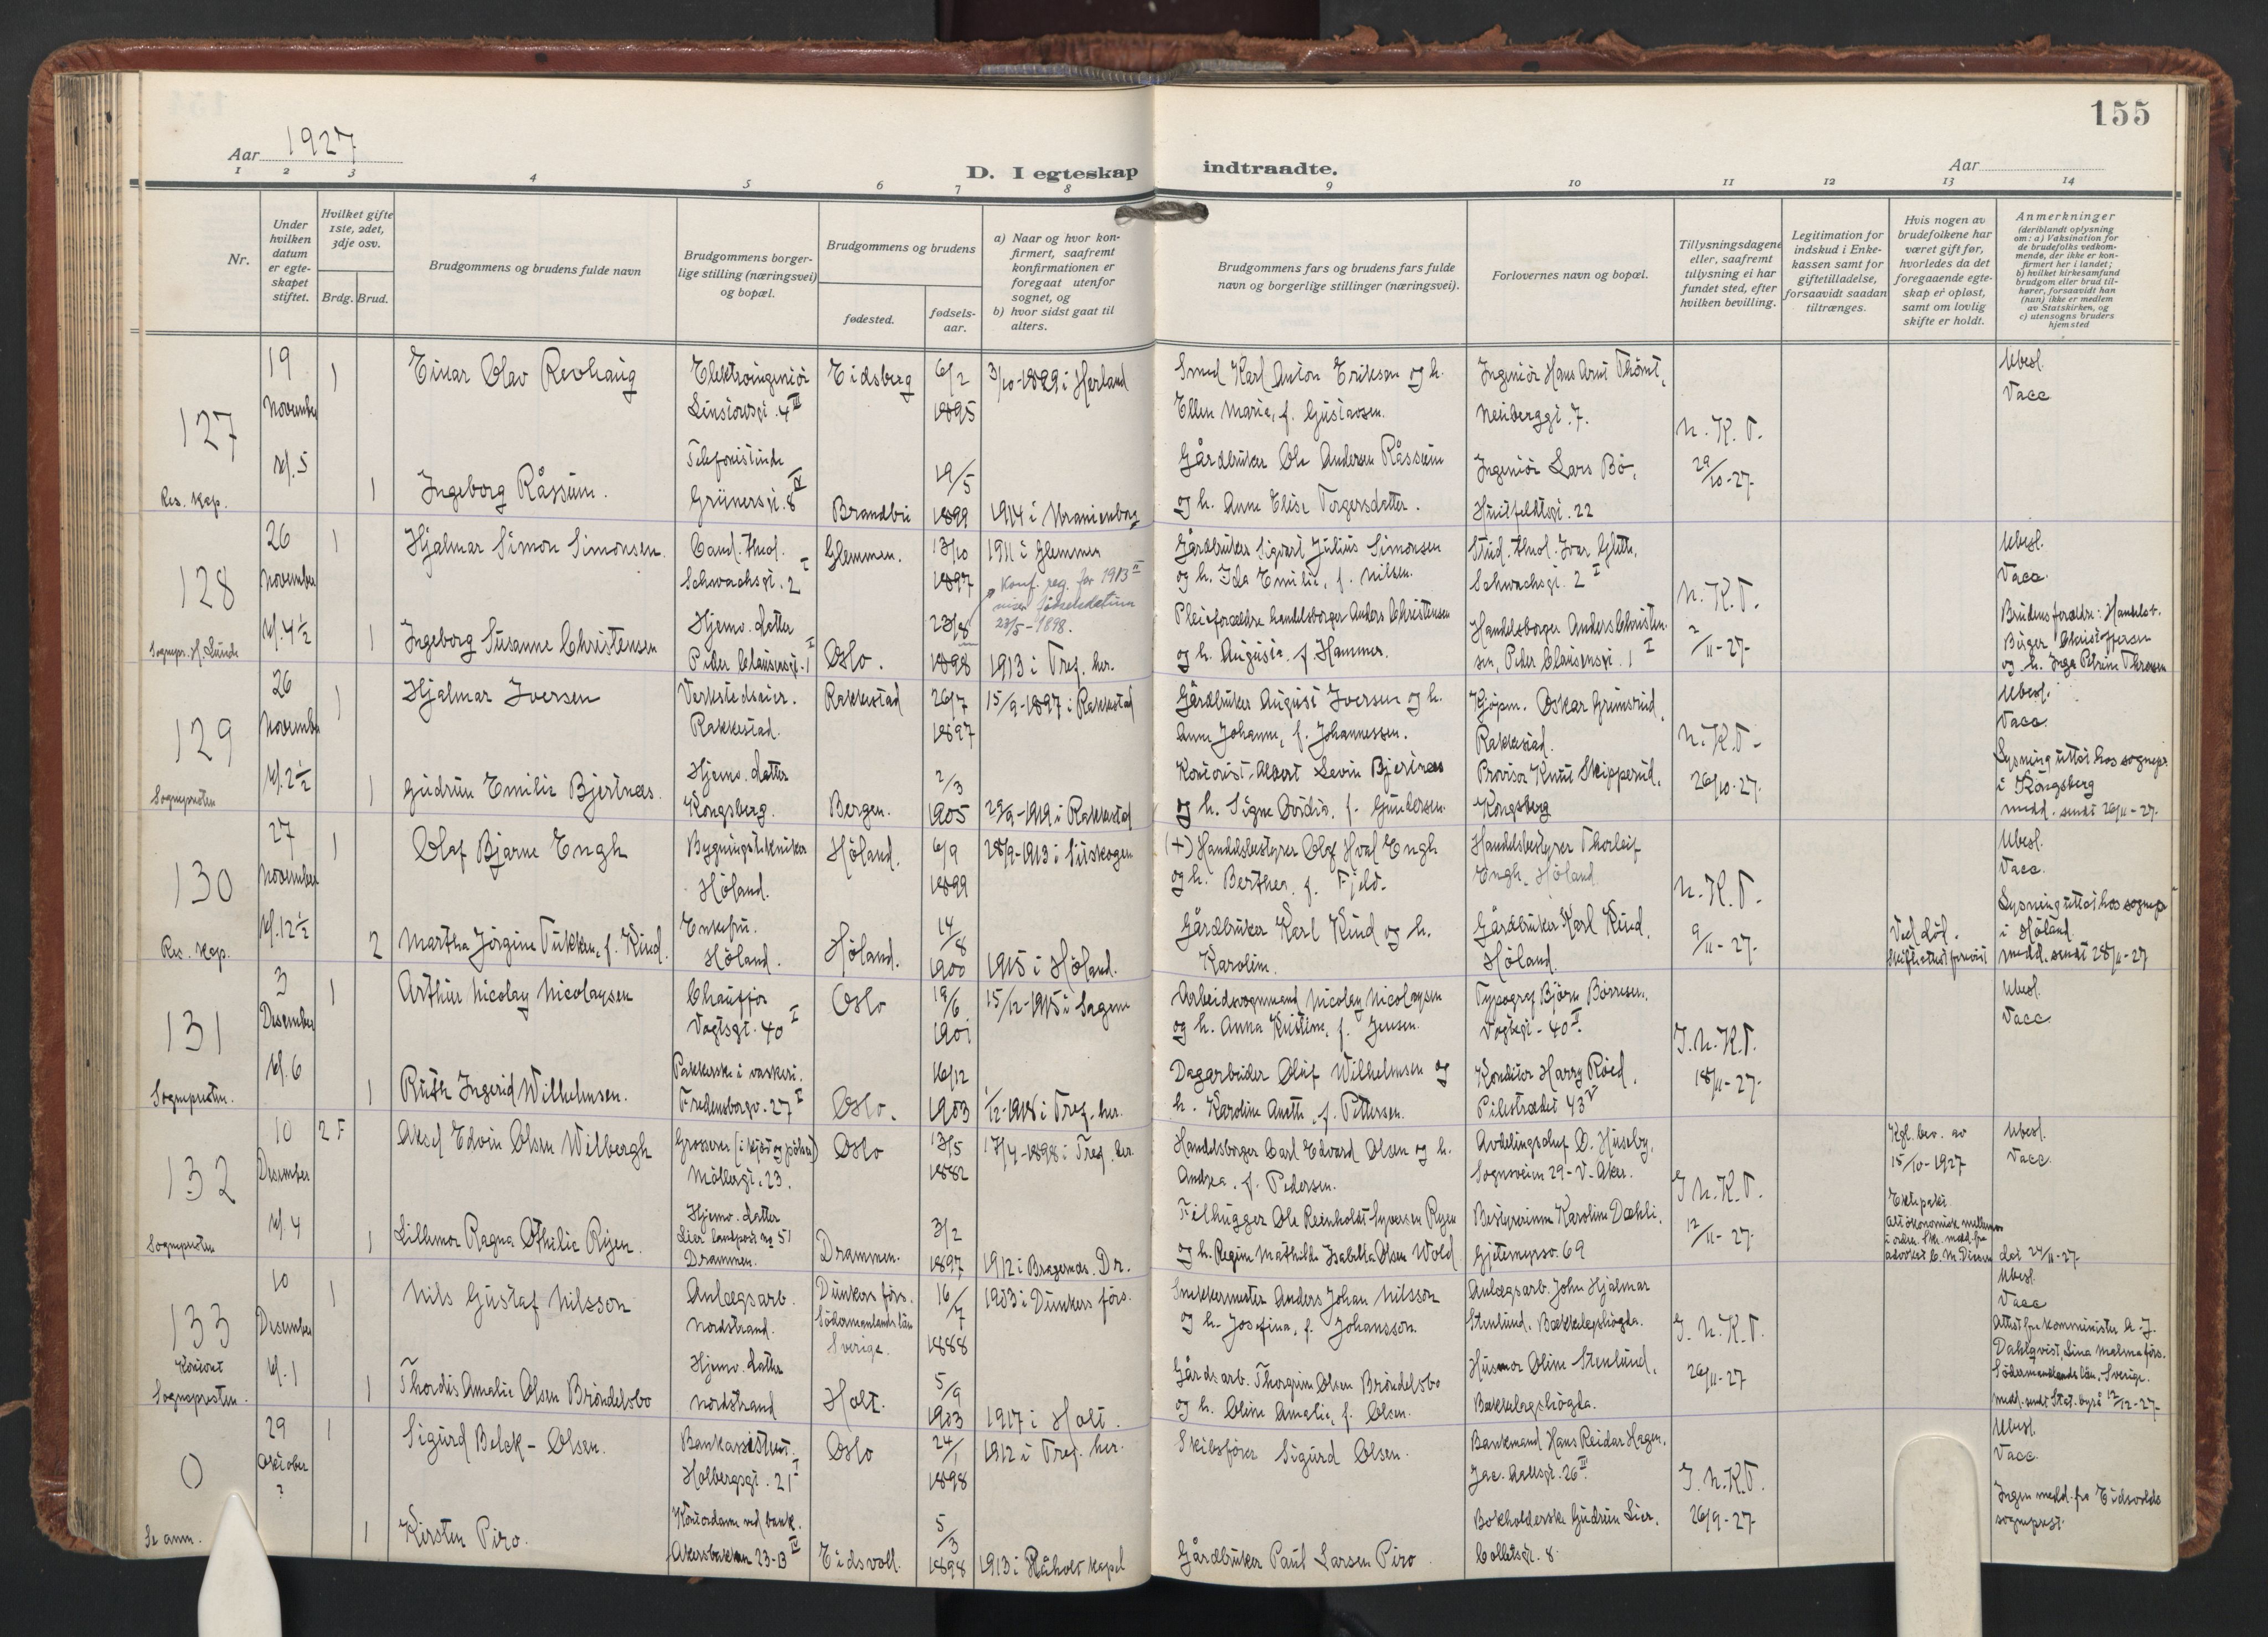 155
Aar 1927
D. I egteskap indtraadte.
Aar
1 2 3 4 5 6 7 8 9 10 11 12 13 14
Nr.
Under hvilken datum er egteskapet stiftet.
Hvilket gifte 1ste, 2det, 3dje osv.
Brdg. Brud.
Brudgommens og brudens fulde navn
Brudgommens borgerlige stilling (næringsvei) og bopæl.
Brudgommens og brudens
fødested.
fødselsaar.
a) Naar og hvor konfirmert, saafremt konfirmationen er foregaat utenfor sognet, og
b) hvor sidst gaat til alters.
Brudgommens fars og brudens fars fulde navn og borgerlige stillinger (næringsvei).
Forlovernes navn og bopæl.
Tillysningsdagene eller, saafremt tillysning ei har fundet sted, efter hvilken bevilling.
Legitimation for indskud i Enkekassen samt for giftetilladelse, forsaavidt saadan tiltrænges.
Hvis nogen av brudefolkene har været gift før, hvorledes da det foregaaende egteskap er opløst, samt om lovlig skifte er holdt.
Anmerkninger (deriblandt oplysning om: a) Vaksination for de brudefolks vedkommende, der ikke er konfirmert her i landet; b) hvilket kirkesamfund brudgom eller brud tilhører, forsaavidt han (hun) ikke er medlem av Statskirken, og c) utensogns bruders hjemsted
127
Res. kap.
19 November kl. 5
1
Einar Olav Revhaug
Elektroingeniör
Linstowsgt. 4 III
Eidsberg
6/2 1895
3/10-1829 i Herland
Smed Karl Anton Eriksen og h.
Ellen Marie, f. Gustavsen.
Ingeniör Hans Arnt Thömt,
Neuberggt. 7.
Ubesl.
Vacc
1
Ingeborg Råssum.
Telefonistinde
Grünersgt. 8 IV
Brandbu
19/5 1899
1914 i Uranienborg
Gårdbruker Ole Andersen Råssum
og h. Anne Elise Torgersdatter.
Ingeniör Lars Bö,
Huitfeldtsgt. 22
N. K. T.
29/10-27
128
Sognepr. H. Lunde
26 November kl. 4 1/2
1
Hjalmar Simon Simonsen.
Cand. theol.
Schwachsgt. 2 I
Glemmen.
13/10 1897
1911 i Glemmen
Konf. reg. for 1913
viser fødselsdatum
23/5-1898.
Gårdbruker Sigvart Julius Simonsen
og h. Ida Emilie, f. Nilsen.
Stud. theol. Ivar Glette,
Schwachsgt. 2 I
Ubesl.
Vacc.
1
Ingeborg Susanne Christensen
Hjemv. datter
Peder Claussensgt. 1 I
Oslo.
23/8 1898
1913 i Tref. her.
Pleieforældre handelsborger Anders Christensen
og h. Augusta, f. Hammer.
Handelsborger Anders Christensen, Peder Claussensgt. 1 I
N. K. T.
2/11-27
Brudens forældre: Handelsb.
Birger Christoffersen
og h. Inga Petrine Thoresen
129
Sogneprsten
26 November kl. 2 1/2
1
Hjalmar Iversen
Verkstedseier.
Rakkestad.
Rakkestad
26/7 1897
15/9-1897 i Rakkestad
Gårdbruker August Iversen og h.
Anne Johanne, f. Johannessen.
Kjöpm. Oskar Grimsrud,
Rakkestad.
Ubesl.
Vacc.
1
Gudrun Emilie Bjertnæs.
Hjemv. datter
Kongsberg.
Bergen.
2/3 1905
29/9-1919 i Rakkestad
Kontorist Albert Levin Bjertnæs
og h. Signe Ovidia, f. Gundersen.
Provisor Knut Skipperud,
Kongsberg
N. K. T.
26/10-27.
Lysning uttat hos sognepr.
i Kongsberg
medd. sendt 26/11-27.
130
Res. kap.
27 November kl. 12 1/2
1
Olaf Bjarne Engh
Bygningstekniker
Höland.
Höland.
6/9 1899
28/9-1913 i Setskogen
(+) Handelsbestyrer Olaf Hval Engh
og h. Berthea, f. Fjeld.
Handelsbestyrer Thorleif
Engh, Höland
Ubesl.
Vacc.
2
Martha Jörgine Tukken, f. Kind.
Enkefru.
Höland.
Höland.
14/8 1900
1915 i Höland.
Gårdbruker Karl Kind og h.
Karoline.
Gårdbruker Karl Kind,
Höland.
N. K. T.
9/11-27.
Ved död.
Skifteattest forevist
Lysning uttat hos sognepr.
i Höland.
medd. sendt 28/11-27
131
Sogneprsten.
3 Desember kl. 6
1
Arthur Nicolay Nicolaysen
Chauffør
Vogtsgt. 40 I
Oslo
19/6 1901
15/12-1915 i Sagene
Arbeidsvognmand Nicolay Nicolaysen
og h. Anna Kristine, f. Jensen.
Typograf Björn Börresen,
Vogtsgt. 40 II
Ubesl.
Vacc.
1
Ruth Ingerid Wilhelmsen.
Pakkerske i vaskeri.
Fredensborgv. 27 I
Oslo.
16/12 1903
1/12-1918 i Tref. her.
Dagarbeider Oluf Wilhelmsen og
h. Karoline Anette, f. Pettersen.
Konditor Harry Röed,
Pilestrædet 43 V
I. N. K. T.
18/11-27.
132
Sogneprsten
10 Desember kl. 4
2 F
Aksel Edvin Olsen Wilbergh
Grosserer (i kjöd og pölser)
Möllergt. 23.
Oslo
13/5 1882
17/4-1898 i Tref. her.
Handelsborger Carl Edvard Olsen og h.
Andrea, f. Pedersen.
Avdelingschef O. Huseby,
Sognsveien 29 - V. Aker.
Kgl. bev. av
15/10-1927
Ubesl.
Vacc.
1
Lillemor Ragna Othilie Ryen.
Hjemv. datter
Lier landpost no 51
Drammen.
Drammen.
3/2 1897
1912 i Bragernes. Dr.
Filhugger Ole Reinholdt Syversen Ryen
og h. Regine Mathilde Isabella Olsen Wold
Bestyrerinne Karoline Dæhli,
Gjetemyrsv. 69
I N. K. T.
12/11-27.
Ektepakt
Alt ökonomisk mellemv.
i orden. Skr. medd. fra
advokat C. M. Diesen dat 24/11-27.
133
Kontoret
Sogneprsten.
10 Desember kl. 1
1
Nils Gustaf Nilsson
Anlægsarb.
Nordstrand.
Dunkers förs.
Södermanlands län
Sverige.
16/7 1888
1903 i Dunkers förs.
Snekkermester Anders Johan Nilsson
og h. Josefina, f. Johansson.
Anlægsarb. John Hjalmar
Stenlund, Bækkelagshögda.
Ubesl.
Vacc
1
Thordis Amalie Olsen Bröndelsbo
Hjemv. datter
Nordstrand
Holt.
5/9 1903
1917 i Holt.
Gårdsarb. Thorgrim Olsen Bröndelsbo
og h. Oline Amalie, f. Olsen.
Husmor Oline Stenlund,
Bækkelagshögda.
I. N. K. T.
26/11-27
Attest fra komminister A. J.
Dahlqvist, Lina Malma förs.
Södermanlands län, Sverige.
medd. sendt Stat. byrå 12/12-27.
0
Se anm.
29 Oktober ?
1
Sigurd Belak-Olsen.
Bankassistent.
Holbergsgt. 21 I
Oslo
24/1 1898
1912 i Tref. her.
Skibsförer Sigurd Olsen.
Bankmand Hans Reidar Hagen,
Jac. Aallsgt. 26 III
Ubesl.
Vacc.
1
Kirsten Piro.
Kontordame ved bank.
Akersbakken 23-B IV
Eidsvoll.
5/3 1898
1913 i Råholt kapel
Gårdbruker Paul Larsen Piro
Bokholderske Gudrun Lier,
Colletsgt. 8.
I. N. K. T.
26/9-27
Ingen medd. fra Eidsvolds
sogneprest.